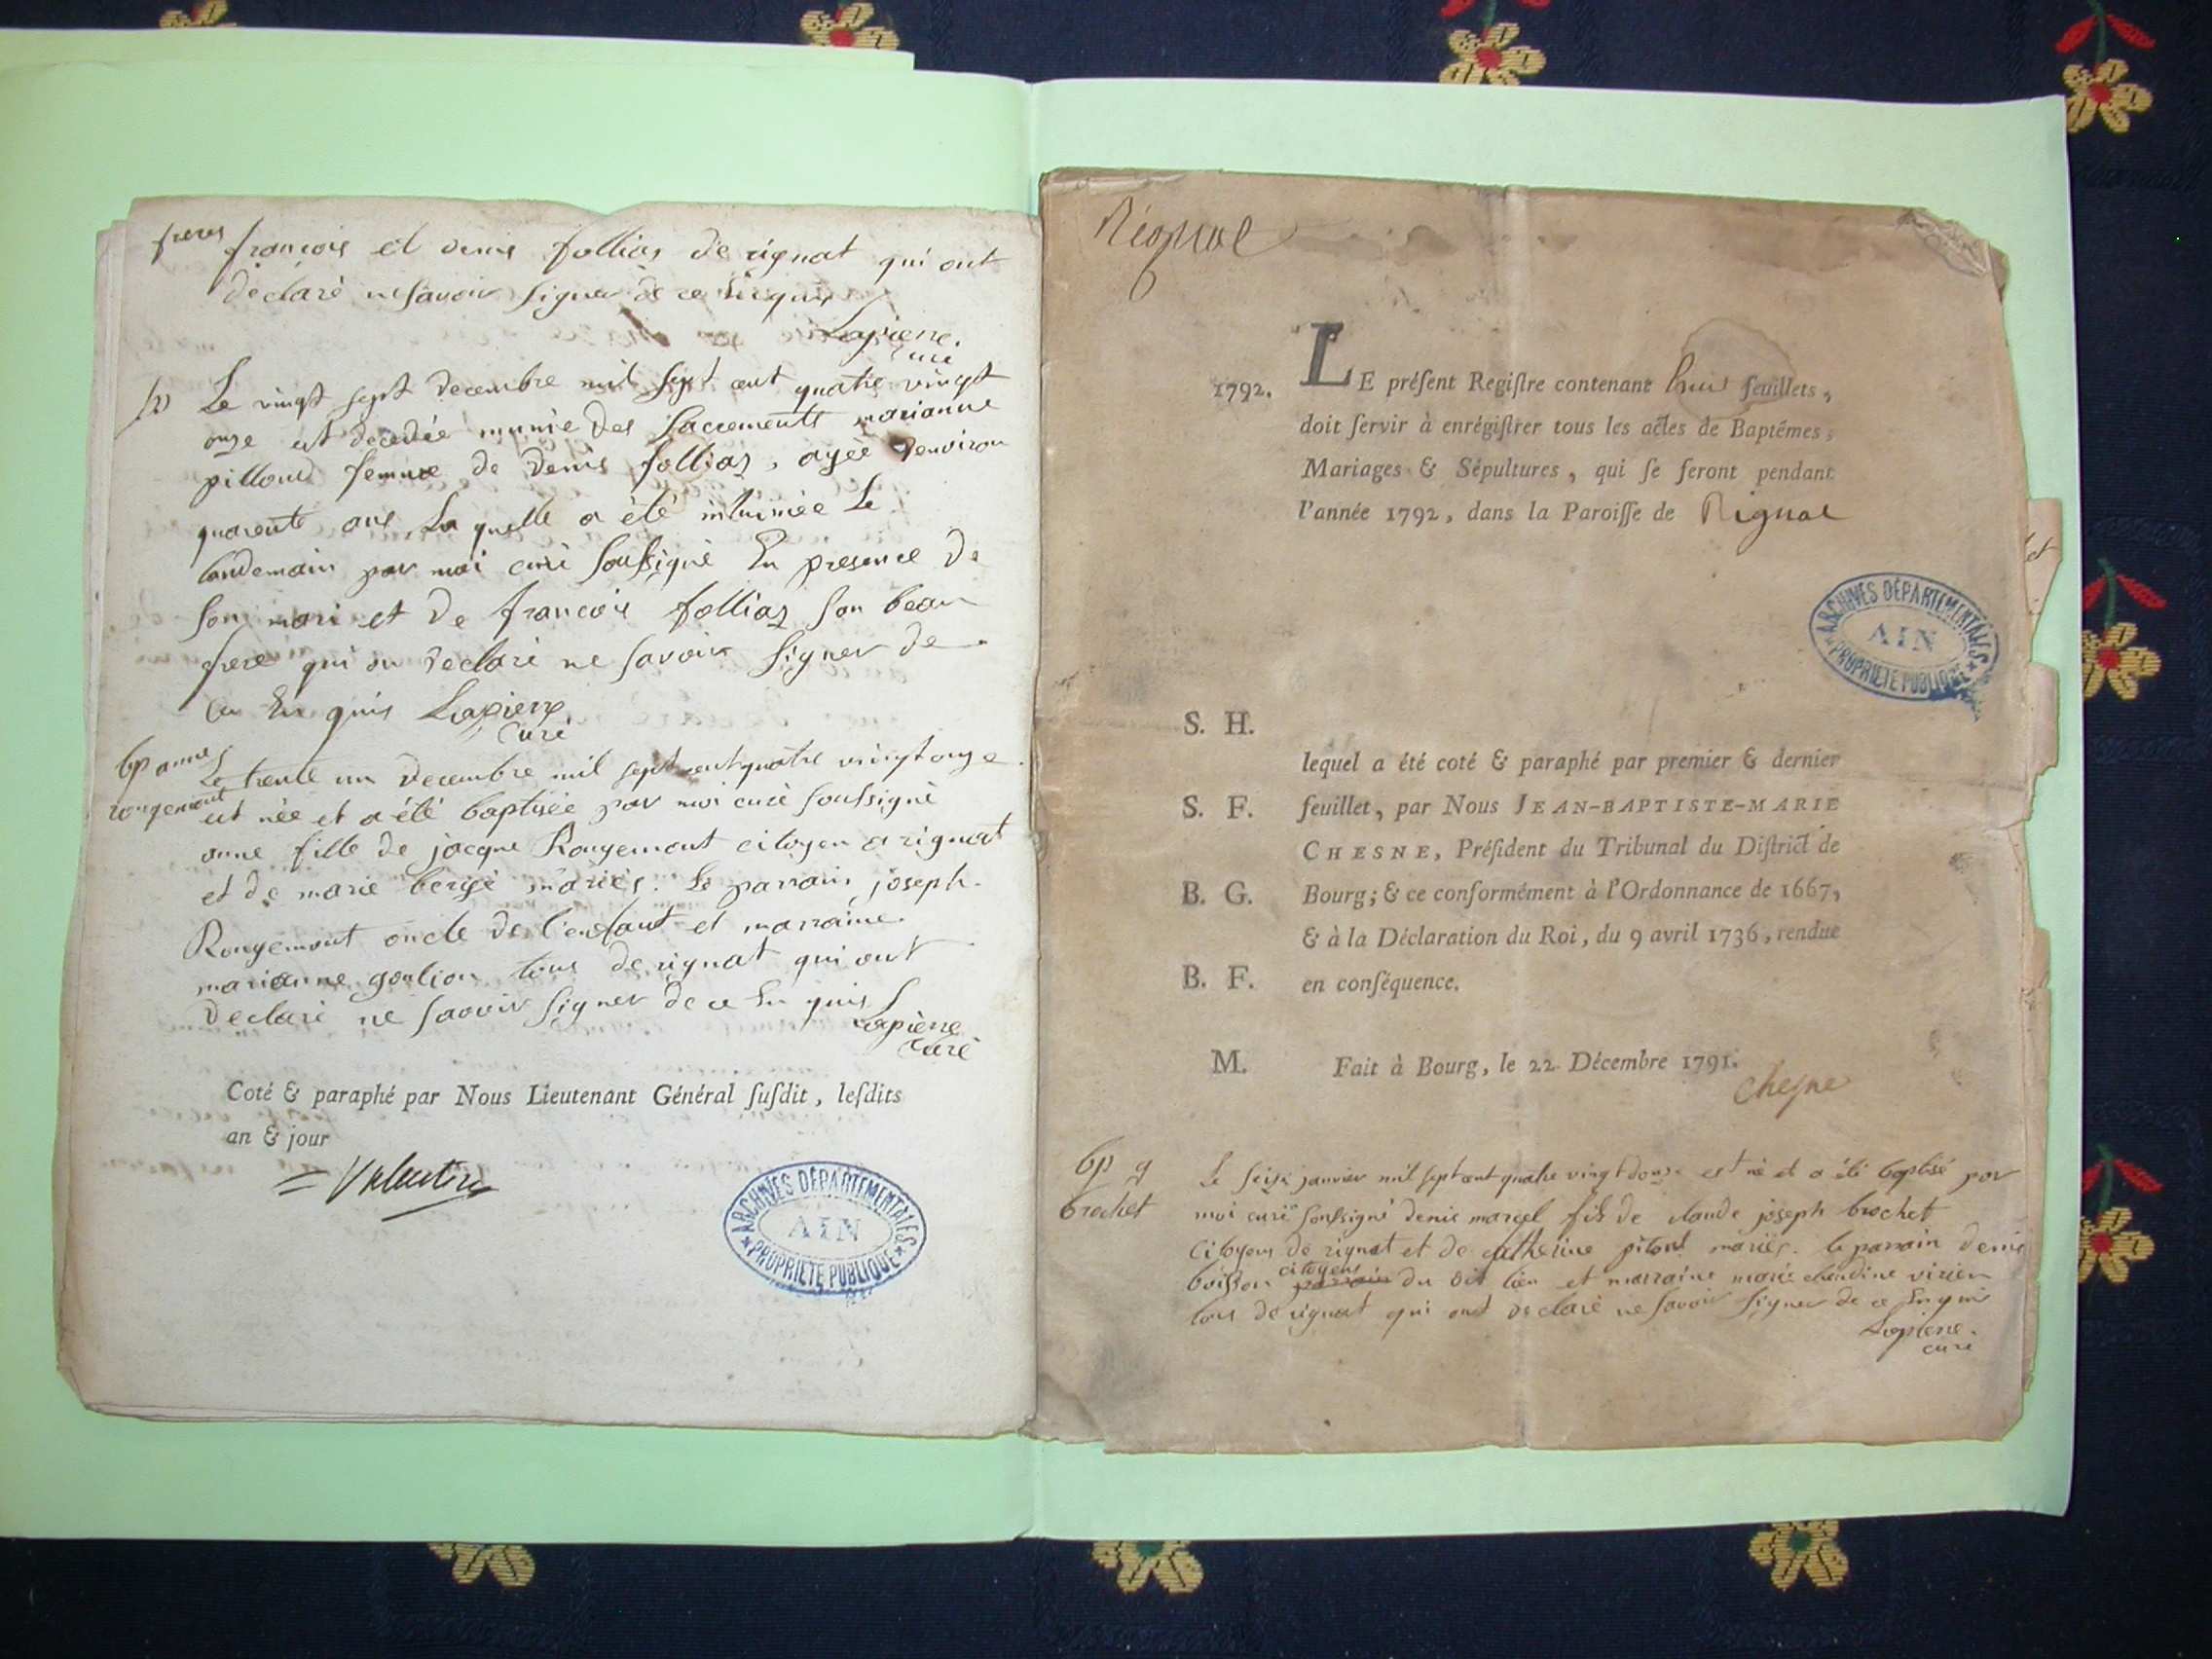 freres françois et denis folliaz de rignat qui ont
déclaré ne savoir signer de ce enquis
Lapierre.
curé
Le vingt sept decembre mil sept cent quatre vingt
onze est decedée munie des sacrements marianne
pilloud femme de denis folliaz, agée denviron
quarente ans la quelle a été inhumée le
landemain par moi curé soussigné En presence de
son mari et de françois folliaz son beau
frere qui on declaré ne savoir signer de
ce En quis Lapierre
curé
bp anne
rougemont
Le trente un decembre mil sept cent quatre vingt onze
est née et a été baptisée par moi curé soussigné
anne fille de jacque Rougemont citoyen a rignat
et de marie bergé mariés. Le parrain joseph
Rougemont oncle de l'enfant et marraine
marianne goulion tous de rignat qui ont
declaré ne savoir signer de ce En quis
Lapierre
curé
Coté & paraphé par Nous Lieutenant Général ſuſdit, leſdits
an & jour
Valentin
ARCHIVES DÉPARTEMENTALES
AIN
PROPRIÉTÉ PUBLIQUE
Rignat
1792. LE préſent Regiſtre contenant huit feuillets,
doit ſervir à enrégiſtrer tous les actes de Baptêmes,
Mariages & Sépultures, qui ſe feront pendant
l'année 1792, dans la Paroiſſe de Rignat
ARCHIVES DÉPARTEMENTALES
AIN
PROPRIÉTÉ PUBLIQUE
S. H.
lequel a été coté & paraphé par premier & dernier
S. F. feuillet, par Nous JEAN-BAPTISTE-MARIE
CHESNE, Préſident du Tribunal du Diſtrict de
B. G. Bourg; & ce conformément à l'Ordonnance de 1667,
& à la Déclaration du Roi, du 9 avril 1736, rendue
B. F. en conſéquence.
M. Fait à Bourg, le 22 Décembre 1791.
Chesne
bp g
brochet
Le seize janvier mil sept cent quatre vingt douze est né et a été baptisé par
moi curé soussigné denis marcel fils de claude joseph brochet
Citoyens de rignat et de catherine piloud mariés. le parrain denis
boisson citoyens du dit lieu et marraine marie claudine virieu
tous de rignat qui ont declaré ne savoir signer de ce Enquis
Lapierre.
curé